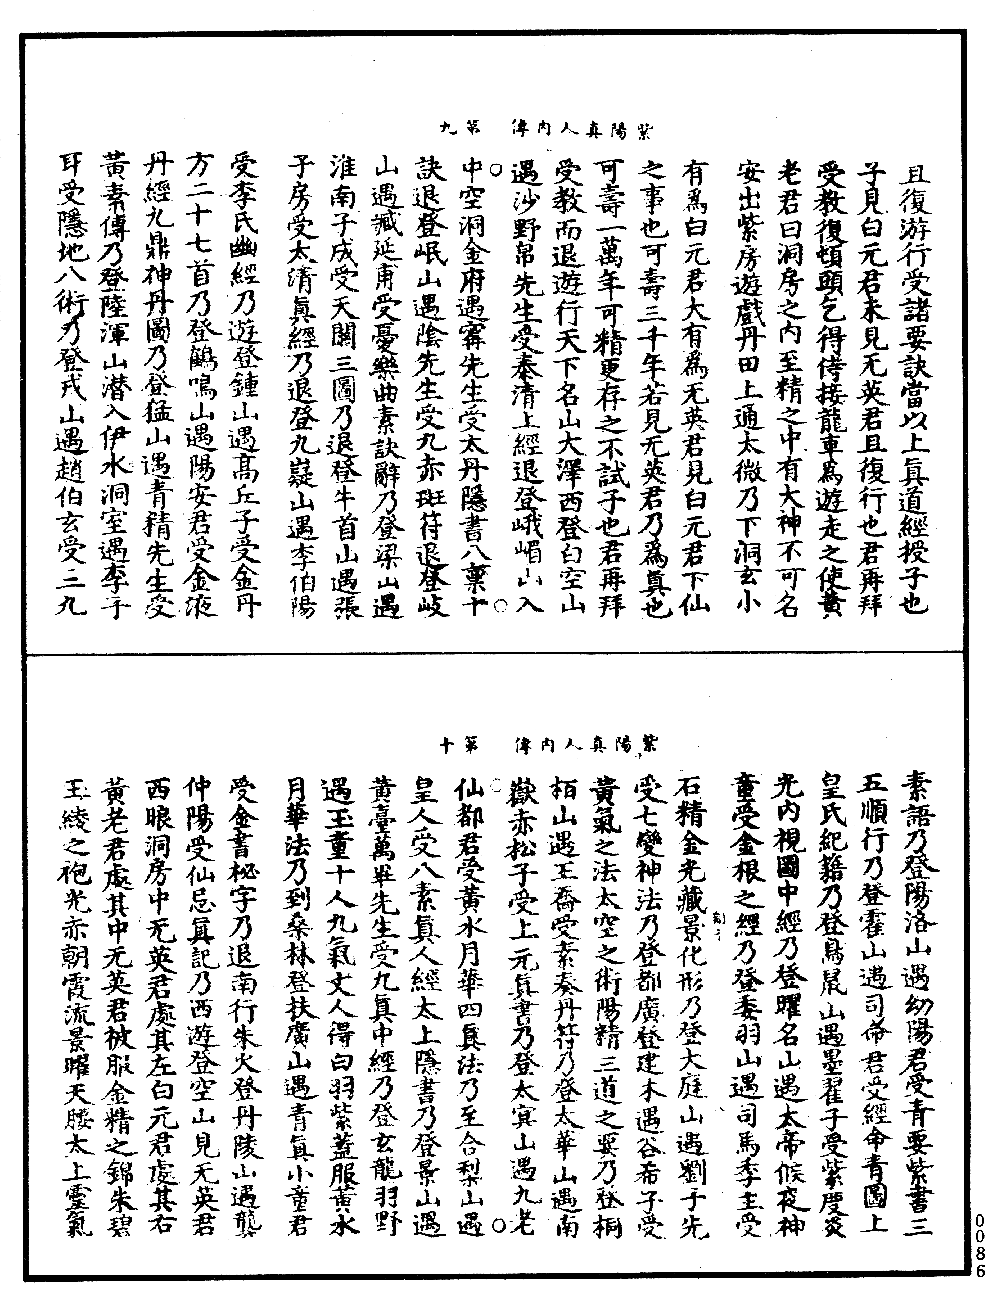 紫陽真人內傳　第九
且復游行受諸要訣當以上真道經授子也
子見白元君未見无英君且復行也君再拜
受教復頓頭乞得侍接龍車為遊走之使黃
老君曰洞房之內至精之中有大神不可名
安出紫房遊戲丹田上通太微乃下洞玄小
有為白元君大有為无英君見白元君下仙
之事也可壽三千年若見无英君乃為真也
可壽一萬年可精更存之不試子也君再拜
受教而退遊行天下名山大澤西登白空山
遇沙野帛先生受泰清上經退登峨嵋山入
中空洞金府遇甯先生受太丹隱書八稟十
訣退登岷山遇陰先生受九赤斑符退登岐
山遇臧延甫受憂樂曲素訣辭乃登梁山遇
淮南子成受天關三圖乃退登牛首山遇張
子房受太清真經乃退登九嶷山遇李伯陽
受李氏幽經乃遊登鍾山遇高丘子受金丹
方二十七首乃登鶴鳴山遇陽安君受金液
丹經九鼎神丹圖乃登猛山遇青精先生受
黃素傳乃登陸渾山潛入伊水洞室遇李子
耳受隱地八術乃登戎山遇趙伯玄受三九
紫陽真人內傳　第十
素語乃登陽洛山遇幼陽君受青要紫書三
五順行乃登霍山遇司命君受經命青圖上
皇氏紀籍乃登鳥鼠山遇墨翟子受紫度炎
光內視圖中經乃登曜名山遇太帝候夜神
童受金根之經乃登委羽山遇司馬季主受
石精金光藏景化形乃登大庭山遇劉子先
受七變神法乃登都廣登建木遇谷希子受
黃氣之法太空之術陽精三道之要乃登桐
栢山遇王喬受素奏丹符乃登太華山遇南
嶽赤松子受上元真書乃登太冥山遇九老
仙都君受黃水月華四真法乃至合梨山遇
皇人受八素真人經太上隱書乃登景山遇
黃臺萬畢先生受九真中經乃登玄龍羽野
遇玉童十人九氣丈人得白羽紫蓋服黃水
月華法乃到桑林登扶廣山遇青真小童君
受金書祕字乃退南行朱火登丹陵山遇龔
仲陽受仙忌真記乃西遊登空山見无英君
西眼洞房中无英君處其左白元君處其右
黃老君處其中无英君被服金精之錦朱碧
玉綾之袍光赤朝霞流景曜天腰太上靈氣
0086